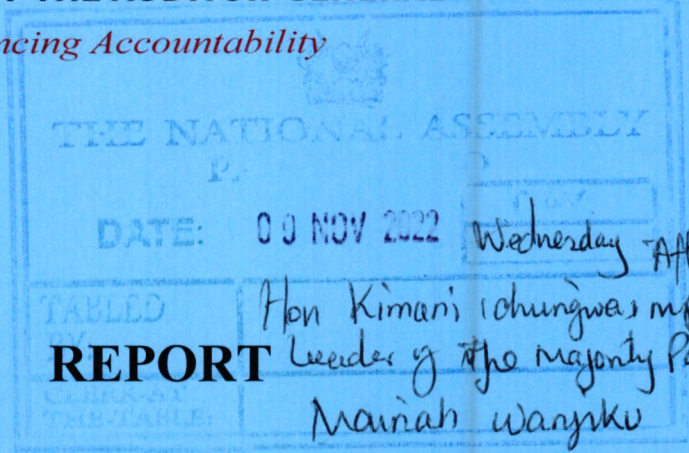 ncing Accountability
THE NATIONAL ASSEMBLY
DATE: 09 NOV 2022 Wednesday
DAY
TABLED
BY:
Hon Kimani Ichungwa, MP
Leader of the Majority Pa
REPORT
CLERK-AT
THE-TABLE:
Mainah Wanjiku